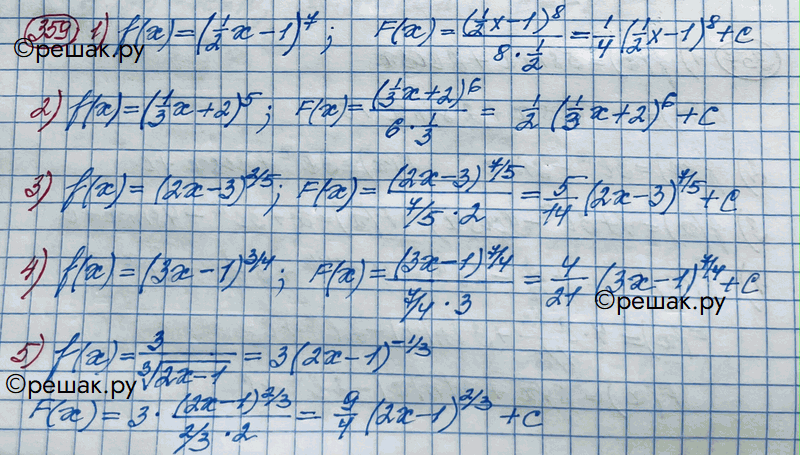 359 1) f(x)=(1/2 x-1)^7; F(x)=(1/2 x-1)^8/(8·1/2)=1/4(1/2 x-1)^8+C
©решак.ру
2) f(x)=(1/3 x+2)^5; F(x)=(1/3 x+2)^6/(6·1/3)=1/2(1/3 x+2)^6+C
3) f(x)=(2x-3)^2/5; F(x)=(2x-3)^7/5/(7/5·2)=5/14(2x-3)^7/5+C
4) f(x)=(3x-1)^3/4; F(x)=(3x-1)^7/4/(7/4·3)=4/21(3x-1)^7/4+C
©решак.ру
5) f(x)=3/∛(2x-1)=3(2x-1)^-1/3
©решак.ру
F(x)=3·(2x-1)^2/3/(2/3·2)=9/4(2x-1)^2/3+C